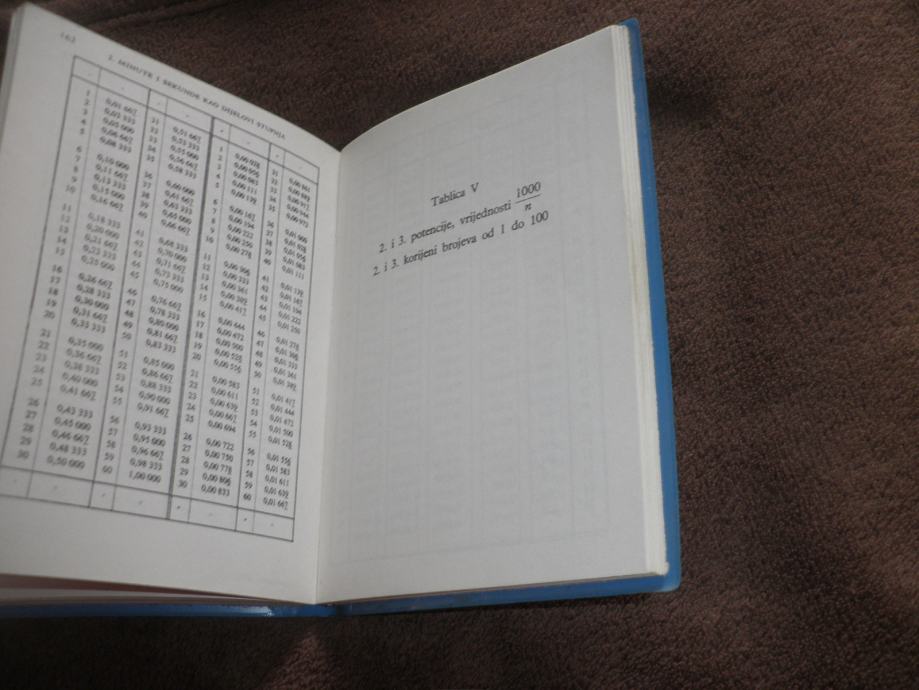 162
2. MINUTE I SEKUNDE KAO DIJELOVI STUPNJA
1 0,01 667 31 0,51 667 1 0,00 028 31 0,00 861
2 0,03 333 32 0,53 333 2 0,00 056 32 0,00 889
3 0,05 000 33 0,55 000 3 0,00 083 33 0,00 917
4 0,06 667 34 0,56 667 4 0,00 111 34 0,00 944
5 0,08 333 35 0,58 333 5 0,00 139 35 0,00 972
6 0,10 000 36 0,60 000 6 0,00 167 36 0,01 000
7 0,11 667 37 0,61 667 7 0,00 194 37 0,01 028
8 0,13 333 38 0,63 333 8 0,00 222 38 0,01 056
9 0,15 000 39 0,65 000 9 0,00 250 39 0,01 083
10 0,16 667 40 0,66 667 10 0,00 278 40 0,01 111
11 0,18 333 41 0,68 333 11 0,00 306 41 0,01 139
12 0,20 000 42 0,70 000 12 0,00 333 42 0,01 167
13 0,21 667 43 0,71 667 13 0,00 361 43 0,01 194
14 0,23 333 44 0,73 333 14 0,00 389 44 0,01 222
15 0,25 000 45 0,75 000 15 0,00 417 45 0,01 250
16 0,26 667 46 0,76 667 16 0,00 444 46 0,01 278
17 0,28 333 47 0,78 333 17 0,00 472 47 0,01 306
18 0,30 000 48 0,80 000 18 0,00 500 48 0,01 333
19 0,31 667 49 0,81 667 19 0,00 528 49 0,01 361
20 0,33 333 50 0,83 333 20 0,00 556 50 0,01 389
21 0,35 000 51 0,85 000 21 0,00 583 51 0,01 417
22 0,36 667 52 0,86 667 22 0,00 611 52 0,01 444
23 0,38 333 53 0,88 333 23 0,00 639 53 0,01 472
24 0,40 000 54 0,90 000 24 0,00 667 54 0,01 500
25 0,41 667 55 0,91 667 25 0,00 694 55 0,01 528
26 0,43 333 56 0,93 333 26 0,00 722 56 0,01 556
27 0,45 000 57 0,95 000 27 0,00 750 57 0,01 583
28 0,46 667 58 0,96 667 28 0,00 778 58 0,01 611
29 0,48 333 59 0,98 333 29 0,00 806 59 0,01 639
30 0,50 000 60 1,00 000 30 0,00 833 60 0,01 667
Tablica V
2. i 3. potencije, vrijednosti 1000/n
2. i 3. korijeni brojeva od 1 do 100